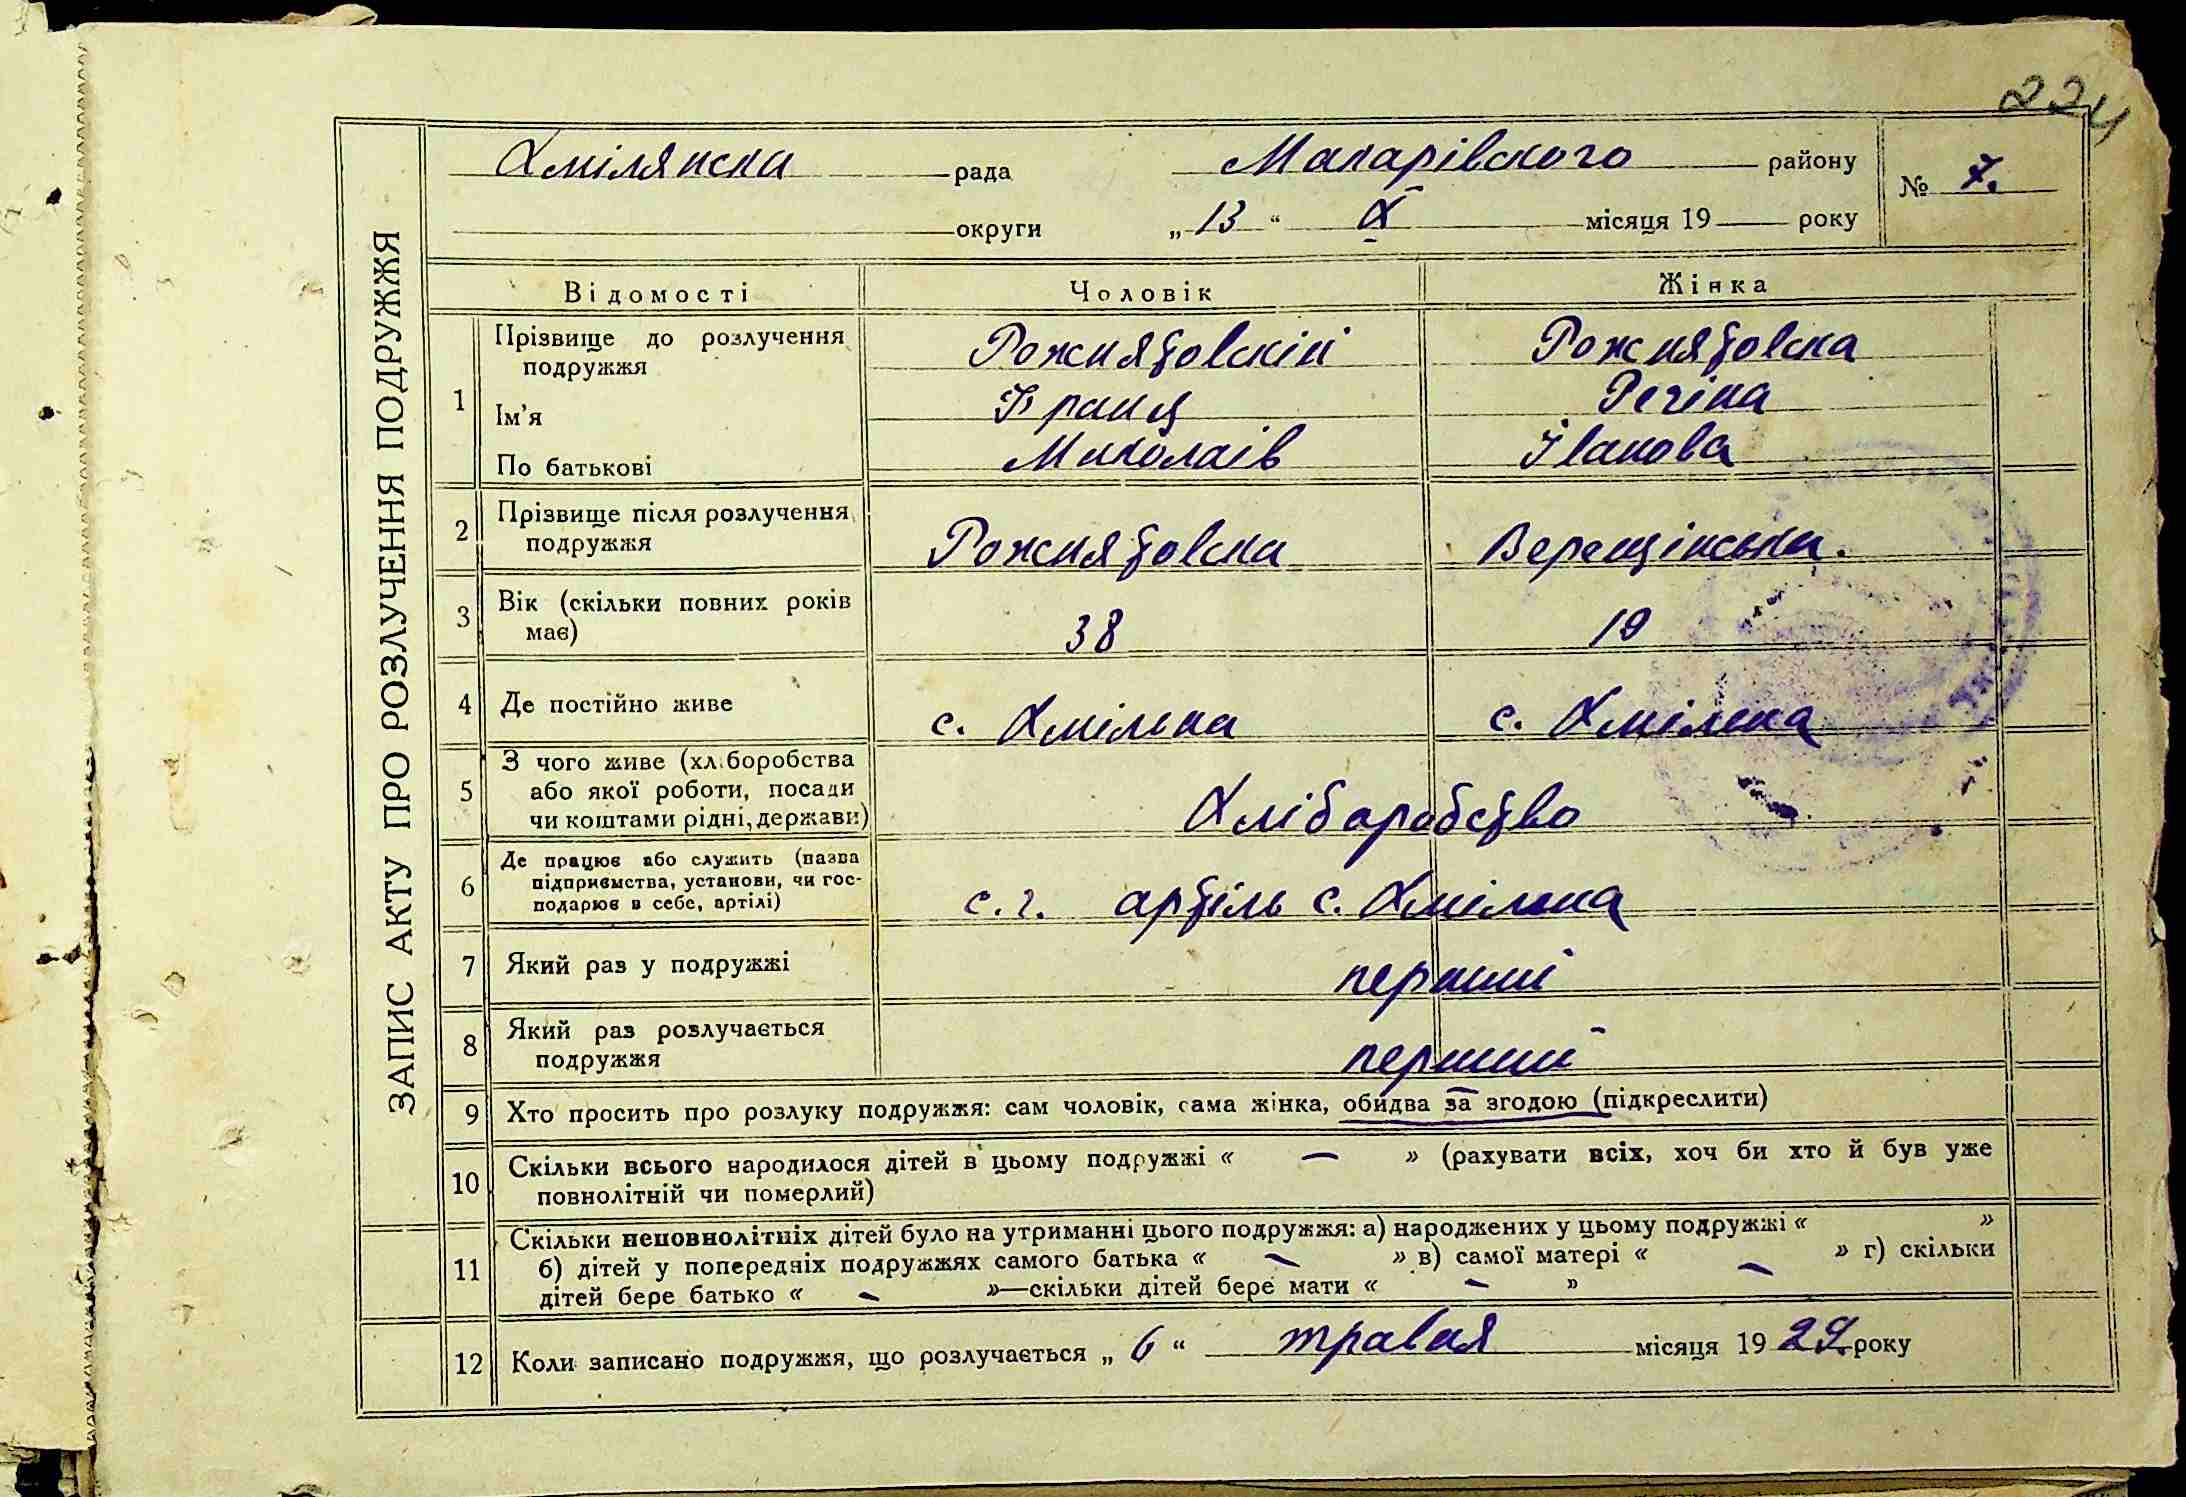 224
ЗАПИС АКТУ ПРО РОЗЛУЧЕННЯ ПОДРУЖЖЯ
Хмілянска рада Макарівского району № 7.
округи „ 13 “ X місяця 19 року
Відомості Чоловік Жінка
1 Прізвище до розлучення подружжя Рожнятовскій Рожнятовска
Ім’я Франц Регіна
По батькові Миколаів Іванова
2 Прізвище після розлучення подружжя Рожнятовска Верещінська.
3 Вік (скільки повних років має) 38 19
4 Де постійно живе с. Хмільна с. Хмільна
5 З чого живе (хл.боробства або якої роботи, посади чи коштами рідні, держави) Хліборобство
6 Де працює або служить (назва підприємства, установи, чи господарює в себе, артілі) с. г. артіль с. Хмільна
7 Який раз у подружжі перший
8 Який раз розлучається подружжя перший
9 Хто просить про розлуку подружжя: сам чоловік, сама жінка, обидва за згодою (підкреслити)
10 Скільки всього народилося дітей в цьому подружжі « — » (рахувати всіх, хоч би хто й був уже
повнолітній чи померлий)
11 Скільки неповнолітніх дітей було на утриманні цього подружжя: а) народжених у цьому подружжі « »
б) дітей у попередніх подружжях самого батька « — » в) самої матері « — » г) скільки
дітей бере батько « — »—скільки дітей бере мати « — »
12 Коли записано подружжя, що розлучається „ 6 “ травня місяця 19 29 року